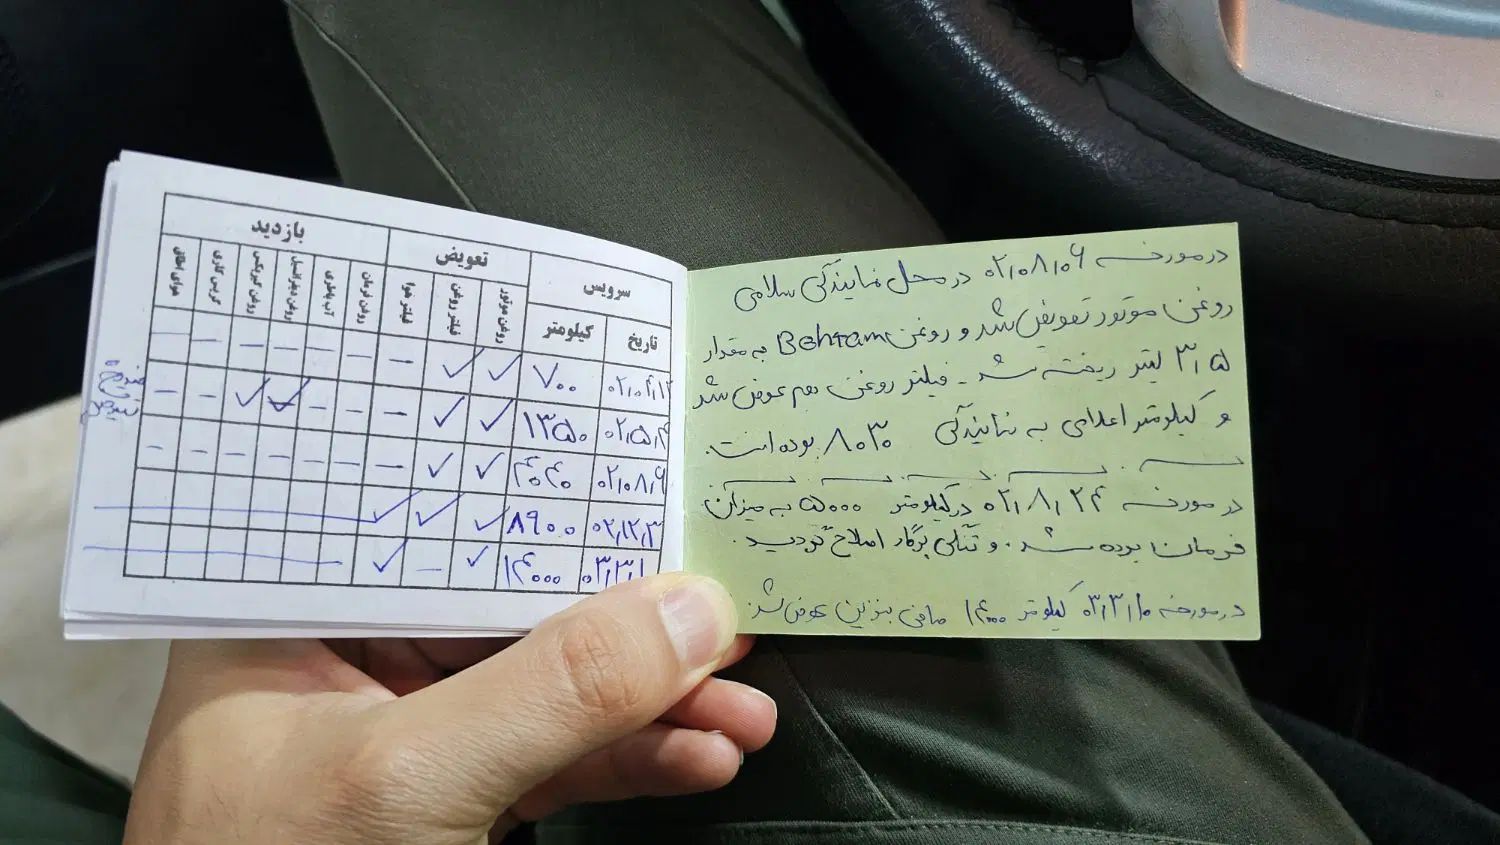 در مورخه ۰۲٫۰۸٫۰۶ در محل نمایندگی سلامی
روغن موتور تعویض شد و روغن Behram به مقدار
۳٫۵ لیتر ریخته شد - فیلتر روغن هم عوض شد
و کیلومتر اعلامی به نمایندگی ۸۰۳۰ بوده است.
در مورخه ۰۲٫۸٫۲۴ در کیلومتر ۵۰۰۰ به میزان
فرمان بوده شد. و تنگی پرگار اصلاح گردید.
در مورخه ۰۳٫۳٫۱۰ کیلومتر ۱۴۰۰۰ صافی بنزین عوض شد.
سرویس تعویض بازدید
تاریخ کیلومتر روغن موتور فیلتر روغن فیلتر هوا روغن فرمان آب باطری روغن دیفرانسیل روغن گیربکس گریس کاری هوای اطاق
۷۰۰ ✓ ✓ – – – – – – –
۰۲٫۵٫۴ ۱۳۵۰ ✓ ✓ – – – ✓ ✓ – –
تعویض
۰۲٫۰۸٫۶ ۴۰۴۰ ✓ ✓ – – – – – – –
۰۲٫۱۲٫۳ ۸۹۰۰ ✓ ✓ ✓
۰۳٫۳٫۱ ۱۴۰۰۰ ✓ – ✓